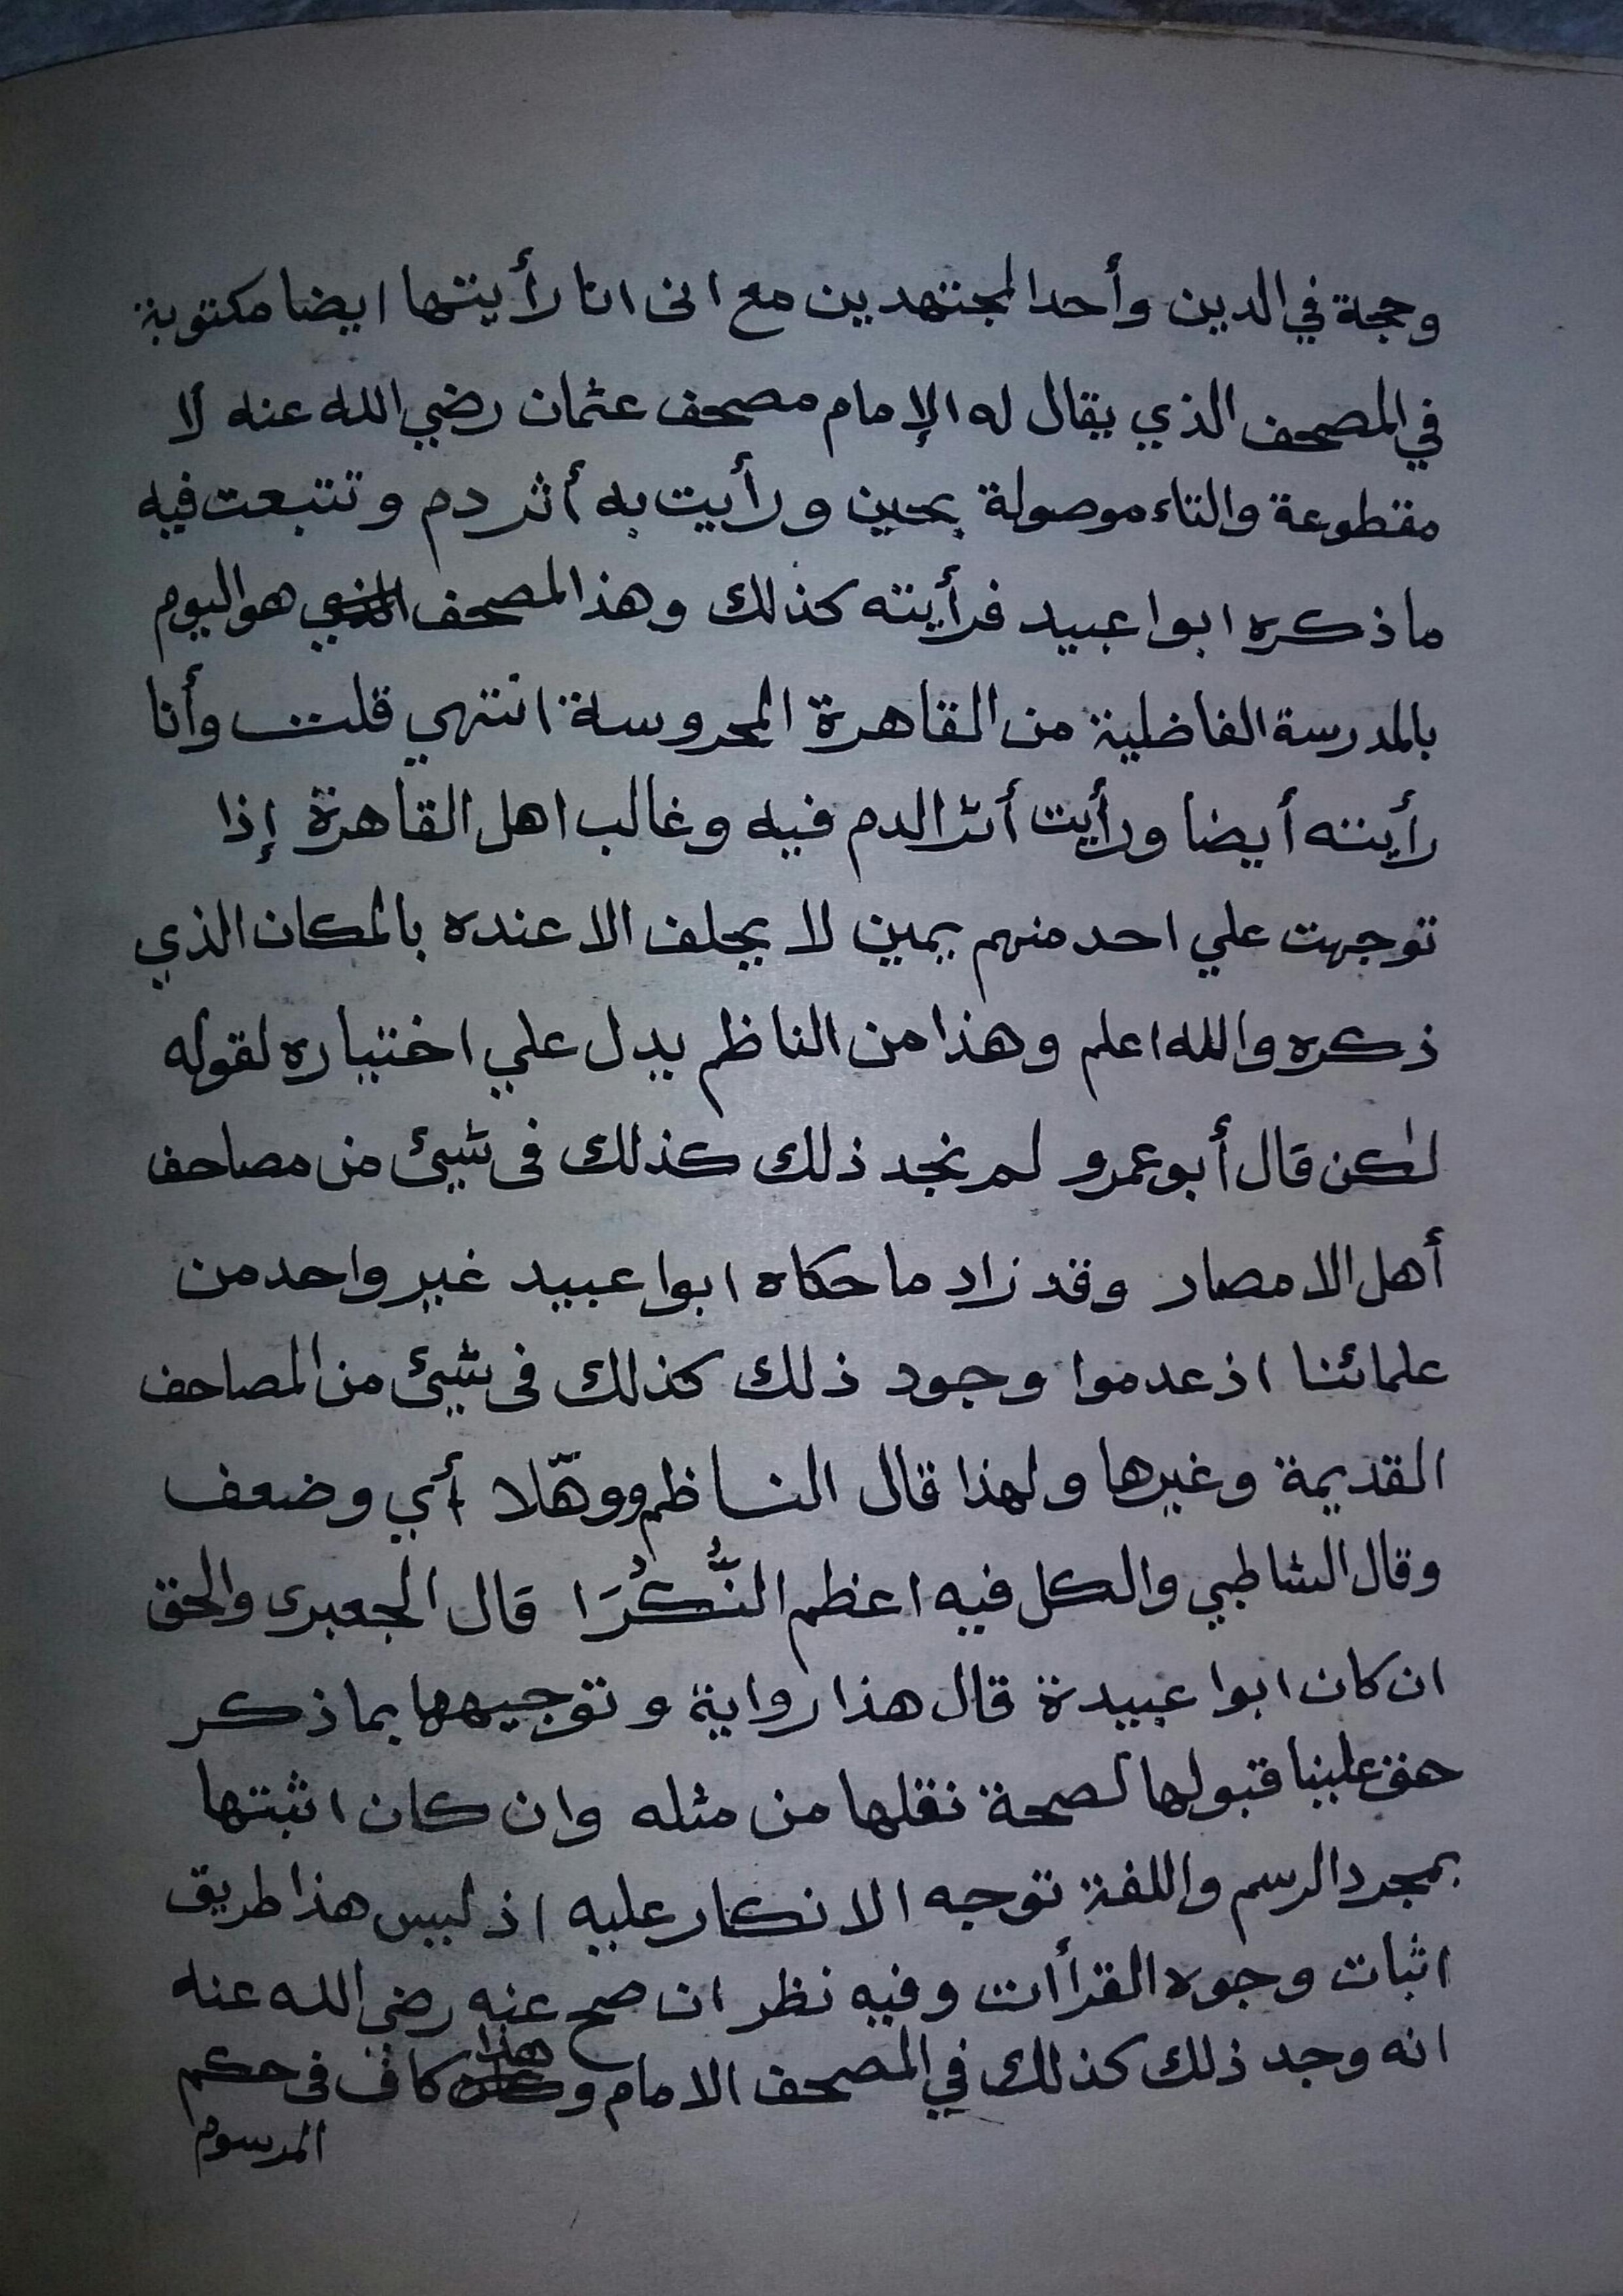 وحجة في الدين وأحد المجتهدين مع انى انا رأيتها ايضا مكتوبة
في المصحف الذي يقال له الإمام مصحف عثمان رضي الله عنه لا
مقطوعة والتاء موصولة بحين ورأيت به أثر دم وتتبعت فيه
ما ذكره ابوا عبيد فرأيته كذلك وهذا المصحف هو اليوم
بالمدرسة الفاضلية من القاهرة المحروسة انتهي قلت وأنا
رأيته أيضا ورأيت أثر الدم فيه وغالب اهل القاهرة إذا
توجهت علي احد منهم يمين لا يحلف الا عنده بالمكان الذي
ذكره والله اعلم وهذا من الناظم يدل علي اختياره لقوله
لكن قال أبو عمرو لم نجد ذلك كذلك فى شيئ من مصاحف
أهل الامصار وقد زاد ما حكاه ابوا عبيد غير واحد من
علمائنا اذ عدموا وجود ذلك كذلك فى شيئ من المصاحف
القديمة وغيرها ولهذا قال الناظم ووهّلا أي وضعف
وقال الشاطبي والكل فيه اعظم النُّكُرَا قال الجعبرى والحق
ان كان ابوا عبيدة قال هذا رواية وتوجيهها بما ذكر
حق علينا قبولها لصحة نقلها من مثله وان كان اثبتها
بمجرد الرسم واللغة توجه الانكار عليه اذ ليس هذا طريق
اثبات وجوه القرأات وفيه نظر ان صح عنه رضى الله عنه
انه وجد ذلك كذلك في المصحف الامام وهذا كاف فى حكم
المرسوم